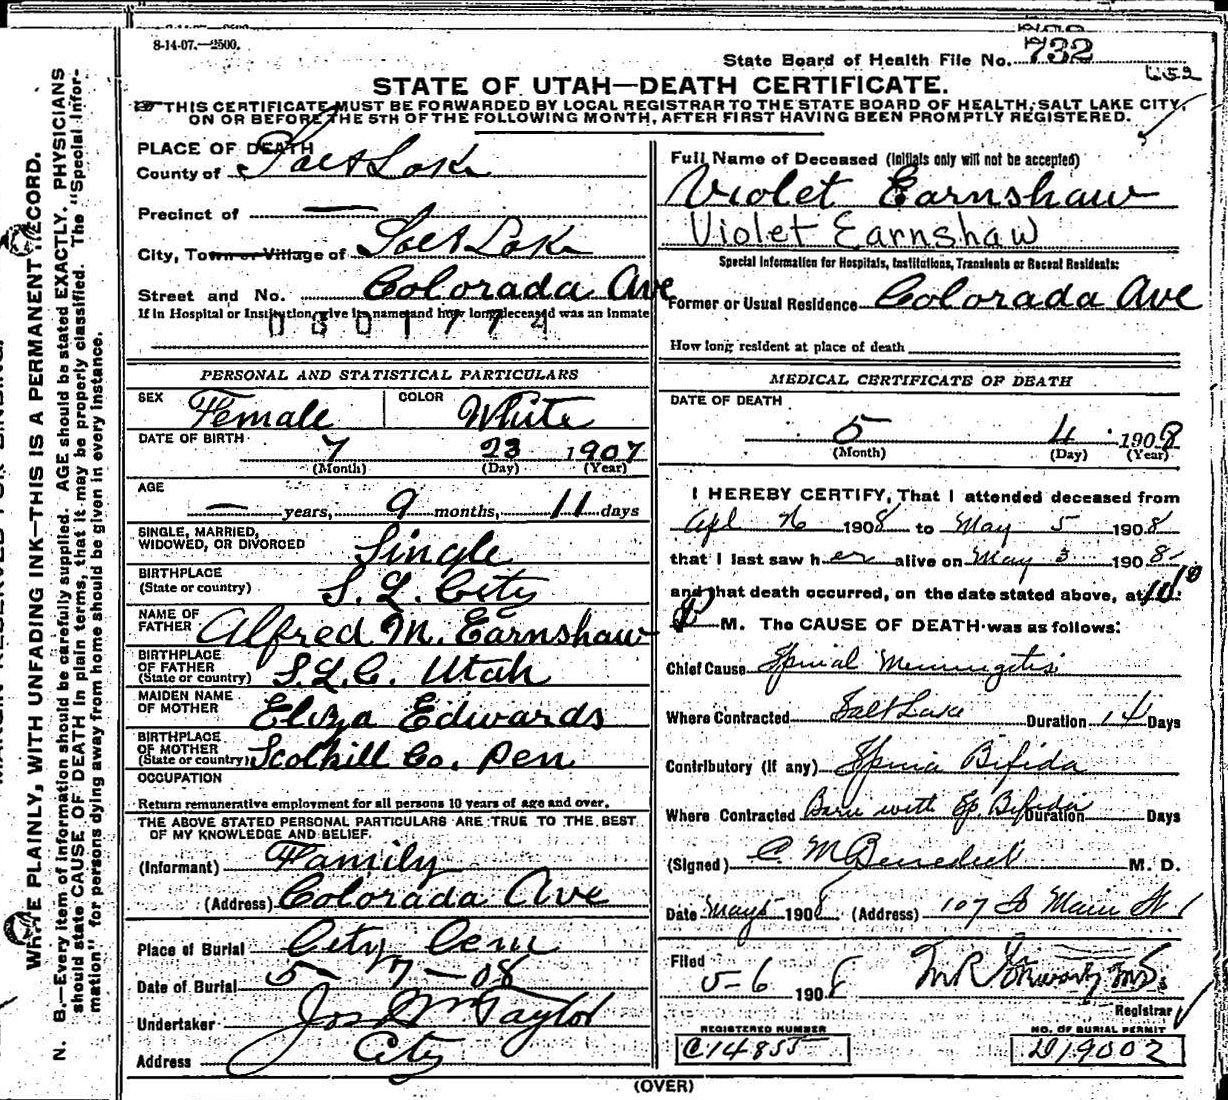 8-14-07.—2500.
State Board of Health File No. 732
652
STATE OF UTAH—DEATH CERTIFICATE.
THIS CERTIFICATE MUST BE FORWARDED BY LOCAL REGISTRAR TO THE STATE BOARD OF HEALTH, SALT LAKE CITY,
ON OR BEFORE THE 5TH OF THE FOLLOWING MONTH, AFTER FIRST HAVING BEEN PROMPTLY REGISTERED.
WRITE PLAINLY, WITH UNFADING INK—THIS IS A PERMANENT RECORD.
N. B.—Every item of information should be carefully supplied. AGE should be stated EXACTLY. PHYSICIANS
should state CAUSE OF DEATH in plain terms, that it may be properly classified. The "Special Infor-
mation" for persons dying away from home should be given in every instance.
PLACE OF DEATH
County of Salt Lake
Precinct of —
City, Town or Village of Salt Lake
Street and No. Colorada Ave
If in Hospital or Institution, give its name and how long deceased was an inmate
0801774
PERSONAL AND STATISTICAL PARTICULARS
SEX Female COLOR White
DATE OF BIRTH 7 23 1907
(Month) (Day) (Year)
AGE
— years, 9 months, 11 days
SINGLE, MARRIED,
WIDOWED, OR DIVORCED Single
BIRTHPLACE
(State or country) S. L. City
NAME OF
FATHER Alfred M. Earnshaw
BIRTHPLACE
OF FATHER
(State or country) S.L.C. Utah
MAIDEN NAME
OF MOTHER Eliza Edwards
BIRTHPLACE
OF MOTHER
(State or country) Scolhill Co. Pen
OCCUPATION
Return remunerative employment for all persons 10 years of age and over.
THE ABOVE STATED PERSONAL PARTICULARS ARE TRUE TO THE BEST
OF MY KNOWLEDGE AND BELIEF.
(Informant) Family
(Address) Colorada Ave
Place of Burial City Cem
Date of Burial 5—7—08
Undertaker Jos Wm Taylor
Address City
Full Name of Deceased (Initials only will not be accepted)
Violet Earnshaw
Violet Earnshaw
Special Information for Hospitals, Institutions, Transients or Recent Residents:
Former or Usual Residence Colorada Ave
How long resident at place of death
MEDICAL CERTIFICATE OF DEATH
DATE OF DEATH
5 4 1908
(Month) (Day) (Year)
I HEREBY CERTIFY, That I attended deceased from
Apl 26 1908 to May 5 1908
that I last saw her alive on May 3 1908
and that death occurred, on the date stated above, at
P M. The CAUSE OF DEATH was as follows:
Chief Cause Spinal Meningetis
Where Contracted Salt Lake Duration 14 Days
Contributory (If any) Spina Bifida
Where Contracted Born with Sp Bifida Duration Days
(Signed) C M Benedict M. D.
Date May 5 1908 (Address) 107 So Main St
Filed
5-6 1908
Registrar
REGISTERED NUMBER
C14855
NO. OF BURIAL PERMIT
D19002
(OVER)